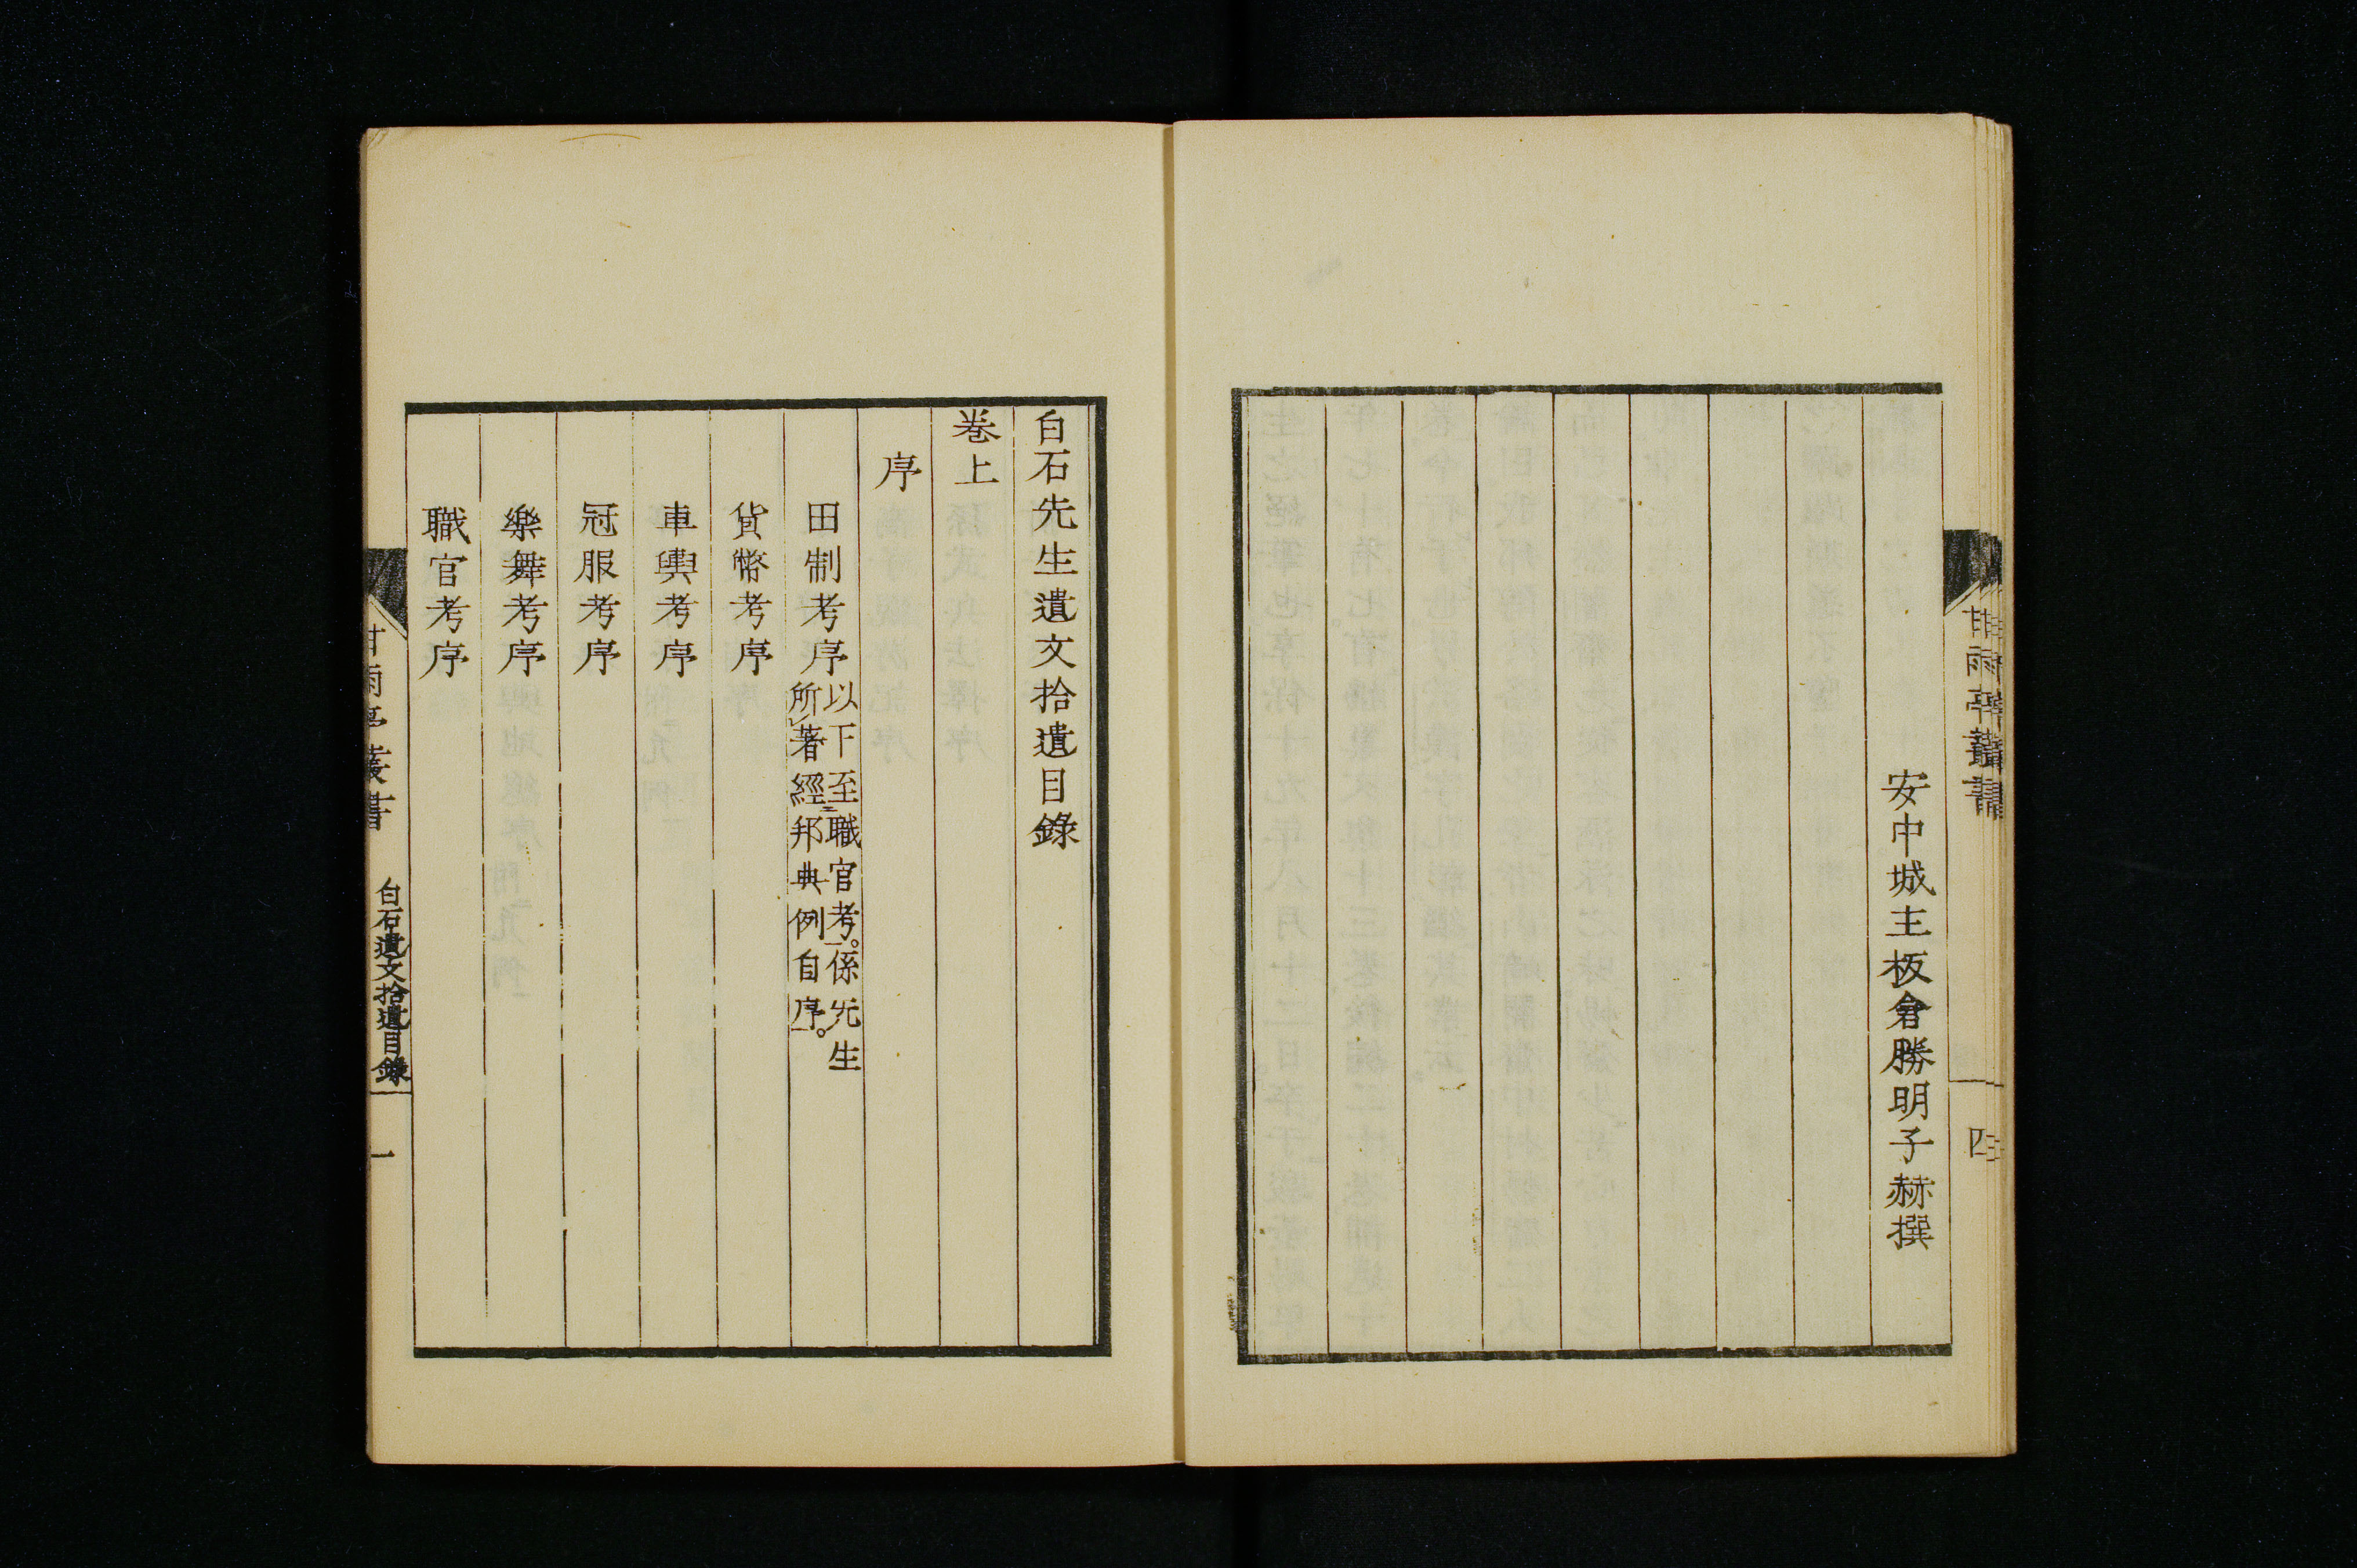 安中城主板倉勝明子赫撰
甘雨亭叢書
四
白石先生遺文拾遺目錄
卷上
序
田制考序
以下至職官考。係先生
所著經邦典例自序。
貨幣考序
車輿考序
冠服考序
樂舞考序
職官考序
甘雨亭叢書
白石遺文拾遺目錄
一